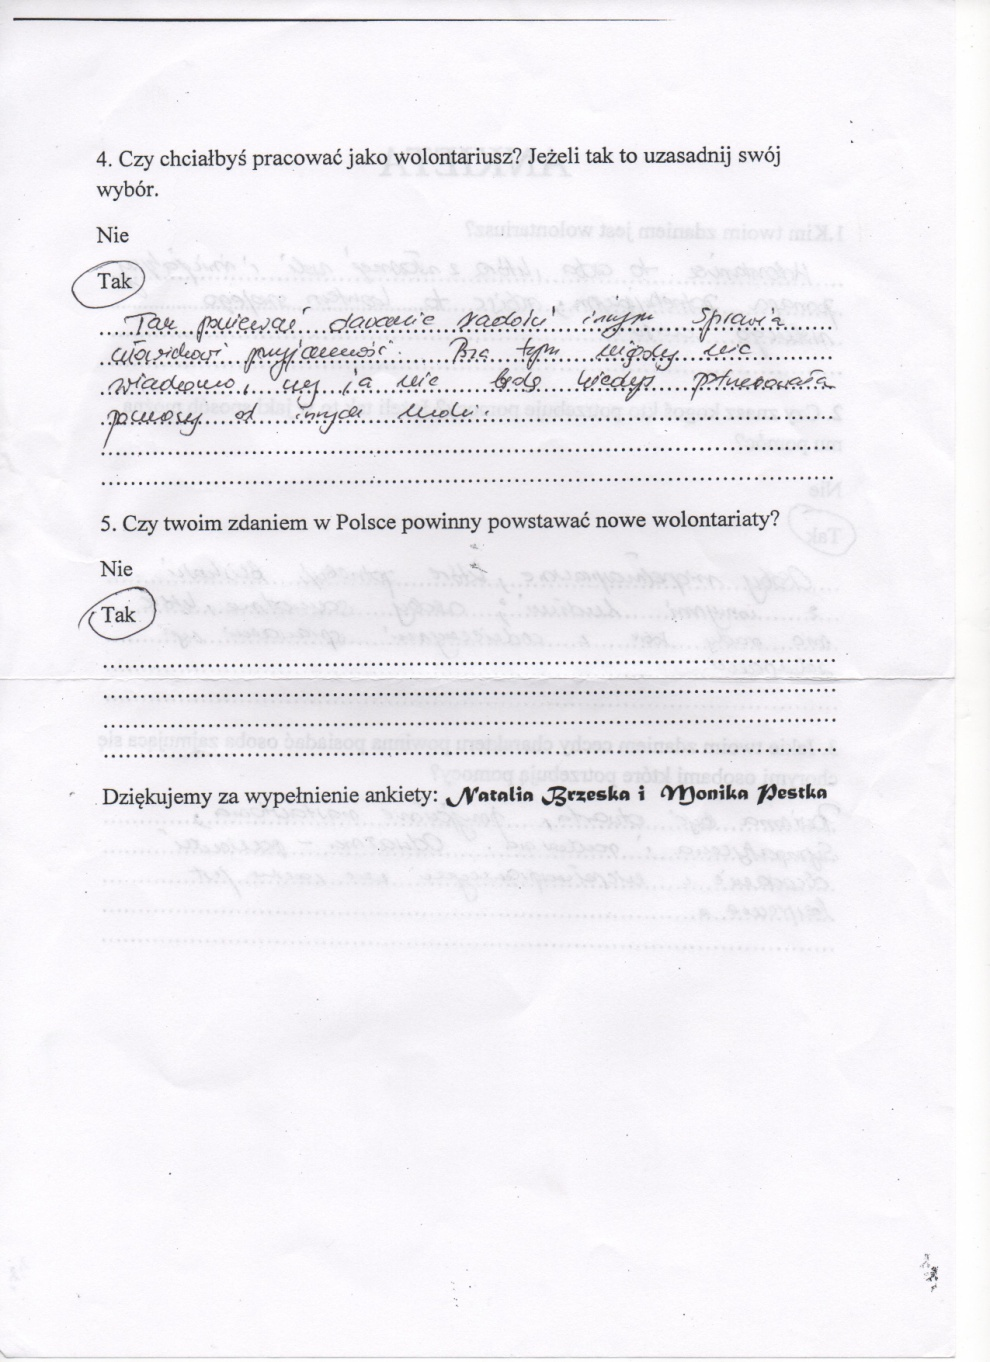 4. Czy chciałbyś pracować jako wolontariusz? Jeżeli tak to uzasadnij swój
wybór.
Nie
Tak
Tak ponieważ dawanie radości innym sprawia
człowiekowi przyjemność. Poza tym nigdy nic
wiadomo, czy ja nie będę kiedyś potrzebowała
pomocy od innych ludzi.
5. Czy twoim zdaniem w Polsce powinny powstawać nowe wolontariaty?
Nie
Tak
Dziękujemy za wypełnienie ankiety: Natalia Brzeska i Monika Pestka